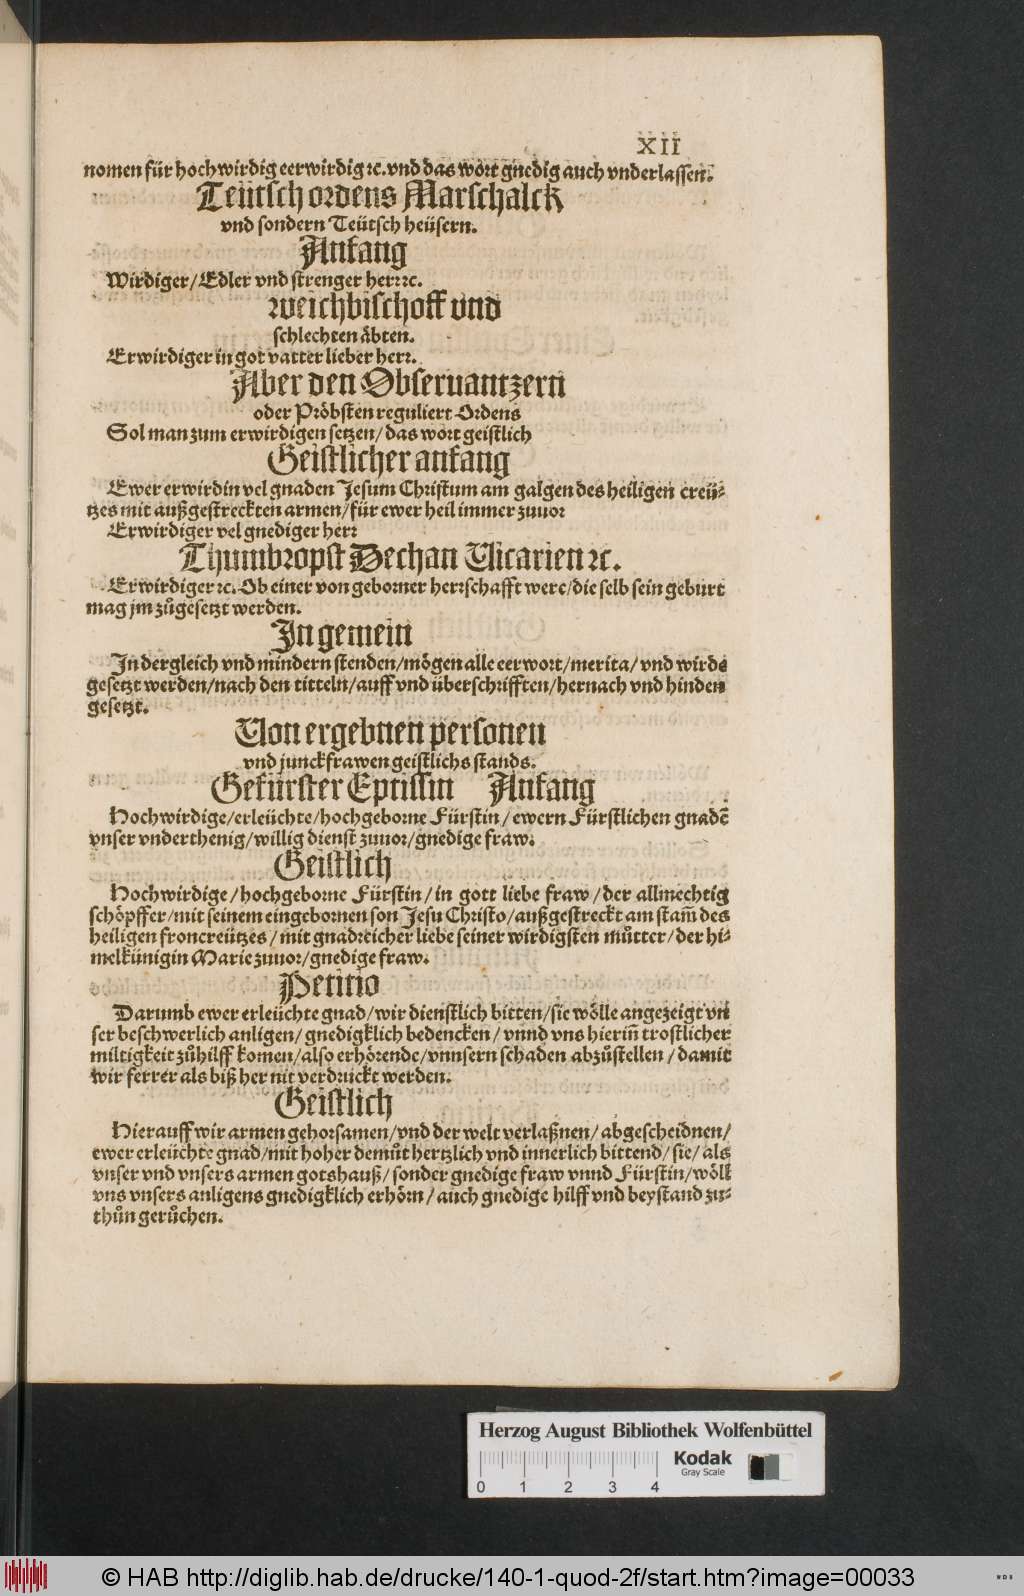 XII
nomen für hochwirdig eerwirdig ꝛc. vnd das wort gnedig auch vnderlassen.
Teütsch ordens Marschalck
vnd sondern Teütsch heüsern.
Anfang
Wirdiger/Edler vnd strenger herr ꝛc.
Weichbischoff vnd
schlechten äbten.
Erwirdiger in got vatter lieber herr.
Aber den Obseruantzern
oder Pröbsten reguliert Ordens
Sol man zum erwirdigen setzen/das wort geistlich
Geistlicher anfang
Ewer erwirdin vel gnaden Jesum Christum am galgen des heiligen creü-
tzes mit außgestreckten armen/für ewer heil immer zuuor
Erwirdiger vel gnediger herr
Thumbropst Dechan Vicarien ꝛc.
Erwirdiger ꝛc. Ob einer von geborner herrschafft were/die selb sein geburt
mag jm zůgesetzt werden.
In gemein
In dergleich vnd mindern stenden/mögen alle eerwort/merita/vnd wirde
gesetzt werden/nach den titteln/auff vnd überschrifften/hernach vnd hinden
gesetzt.
Von ergebnen personen
vnd junckfrawen geistlichs stands.
Gefürster Eptissin Anfang
Hochwirdige/erleüchte/hochgeborne Fürstin/ewern Fürstlichen gnadē
vnser vnderthenig/willig dienst zuuor/gnedige fraw.
Geistlich
Hochwirdige/hochgeborne Fürstin/in gott liebe fraw/der allmechtig
schöpffer/mit seinem eingebornen son Jesu Christo/außgestreckt am stam̃ des
heiligen froncreützes/mit gnadreicher liebe seiner wirdigsten můtter/der hi-
melkünigin Marie zuuor/gnedige fraw.
Petitio
Darumb ewer erleüchte gnad/wir dienstlich bitten/sie wölle angezeigt vn
ser beschwerlich anligen/gnedigklich bedencken/vnnd vns hierin̄ trostlicher
miltigkeit zůhilff komen/also erhörende/vnnsern schaden abzůstellen/damit
wir ferrer als biß her nit verdruckt werden.
Geistlich
Hierauff wir armen gehorsamen/vnd der welt verlaßnen/abgescheidnen/
ewer erleüchte gnad/mit hoher demůt hertzlich vnd innerlich bittend/sie/als
vnser vnd vnsers armen gotshauß/sonder gnedige fraw vnnd Fürstin/wöll
vns vnsers anligens gnedigklich erhörn/auch gnedige hilff vnd beystand zu-
thůn gerůchen.
Herzog August Bibliothek Wolfenbüttel
Kodak
Gray Scale
0 1 2 3 4
© HAB http://diglib.hab.de/drucke/140-1-quod-2f/start.htm?image=00033